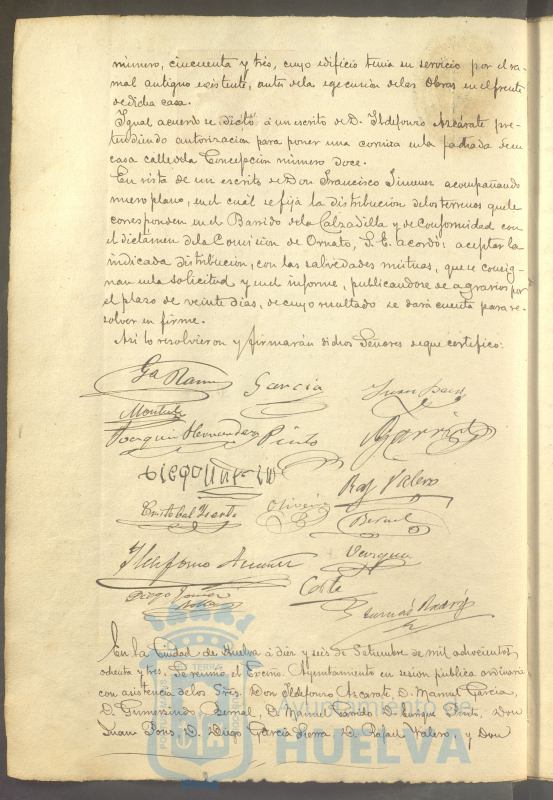 número, cincuenta y tres, cuyo edificio tenia su servicio por el ra-
mal antiguo existente, antes de la ejecucion de las Obras en el frente
de dicha casa.
Igual acuerdo se dictó á un escrito de D. Ildefonso Azcárate pre-
tendiendo autorizacion para poner una cornisa en la fachada de su
casa calle de la Concepcion número doce.
En vista de un escrito de Don Francisco Jimenez acompañando
nuevo plano, en el cual se fija la distribucion de los terrenos que le
corresponden en el Barrido de la Calzadilla y de conformidad con
el dictámen de la Comision de Ornato, S. E. acordó: aceptar la
indicada distribucion, con las salvedades mútuas, que se consig-
nan en la solicitud y en el informe, publicandose de agravios por
el plazo de veinte dias, de cuyo resultado se dará cuenta para re-
solver en firme.
Asi lo resolvieron y firmarán dichos Señores de que certifico:
García
Joaquin Hernandez Pinto
Garrido
Raf Valero
Oliveira
Bernal
Vazquez
Ildefonso
Diego
En la Ciudad de Huelva á diez y seis de Setiembre de mil ochocientos
ochenta y tres. Se reunió el Excmo. Ayuntamiento en sesion pública ordinaria
con asistencia de los Sres. Don Ildefonso Azcarate, D. Manuel Garcia,
D. Gumersindo Bernal, D. Manuel Garrido, D. Enrique Pinto, Don
Juan Pons, D. Diego Garcia Sierra, D. Rafael Valero, y Don
TERRE
Ayuntamiento de
HUELVA